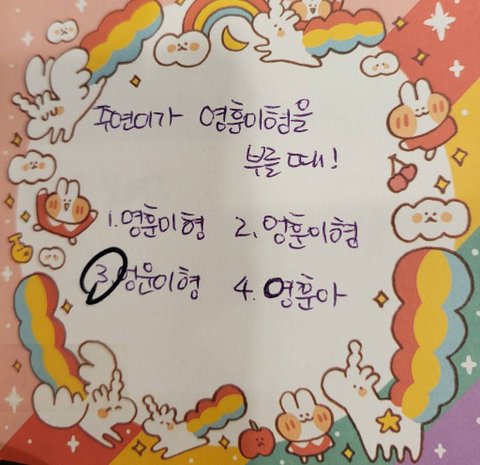 주연이가 영훈이형을
부를 때!
1. 영훈이형 2. 엉훈이형
3. 엉윤이형 4. 영훈아